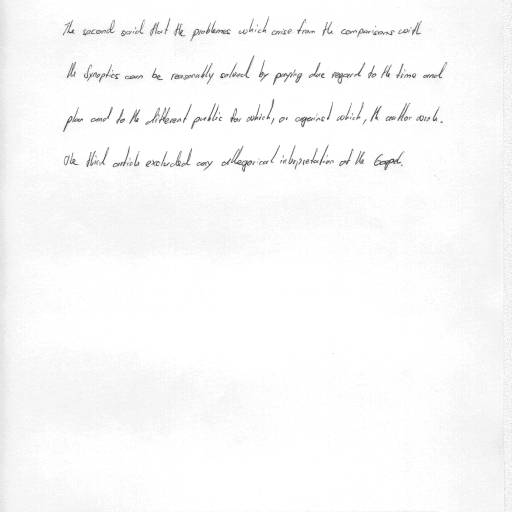 The second said that the problems which arise from the comparisons with
the Synoptics can be reasonably solved by paying due regard to the time and
plan and to the different public for which, or against which, the author wrote.
The third article excluded any allegorical interpretation of the Gospel.